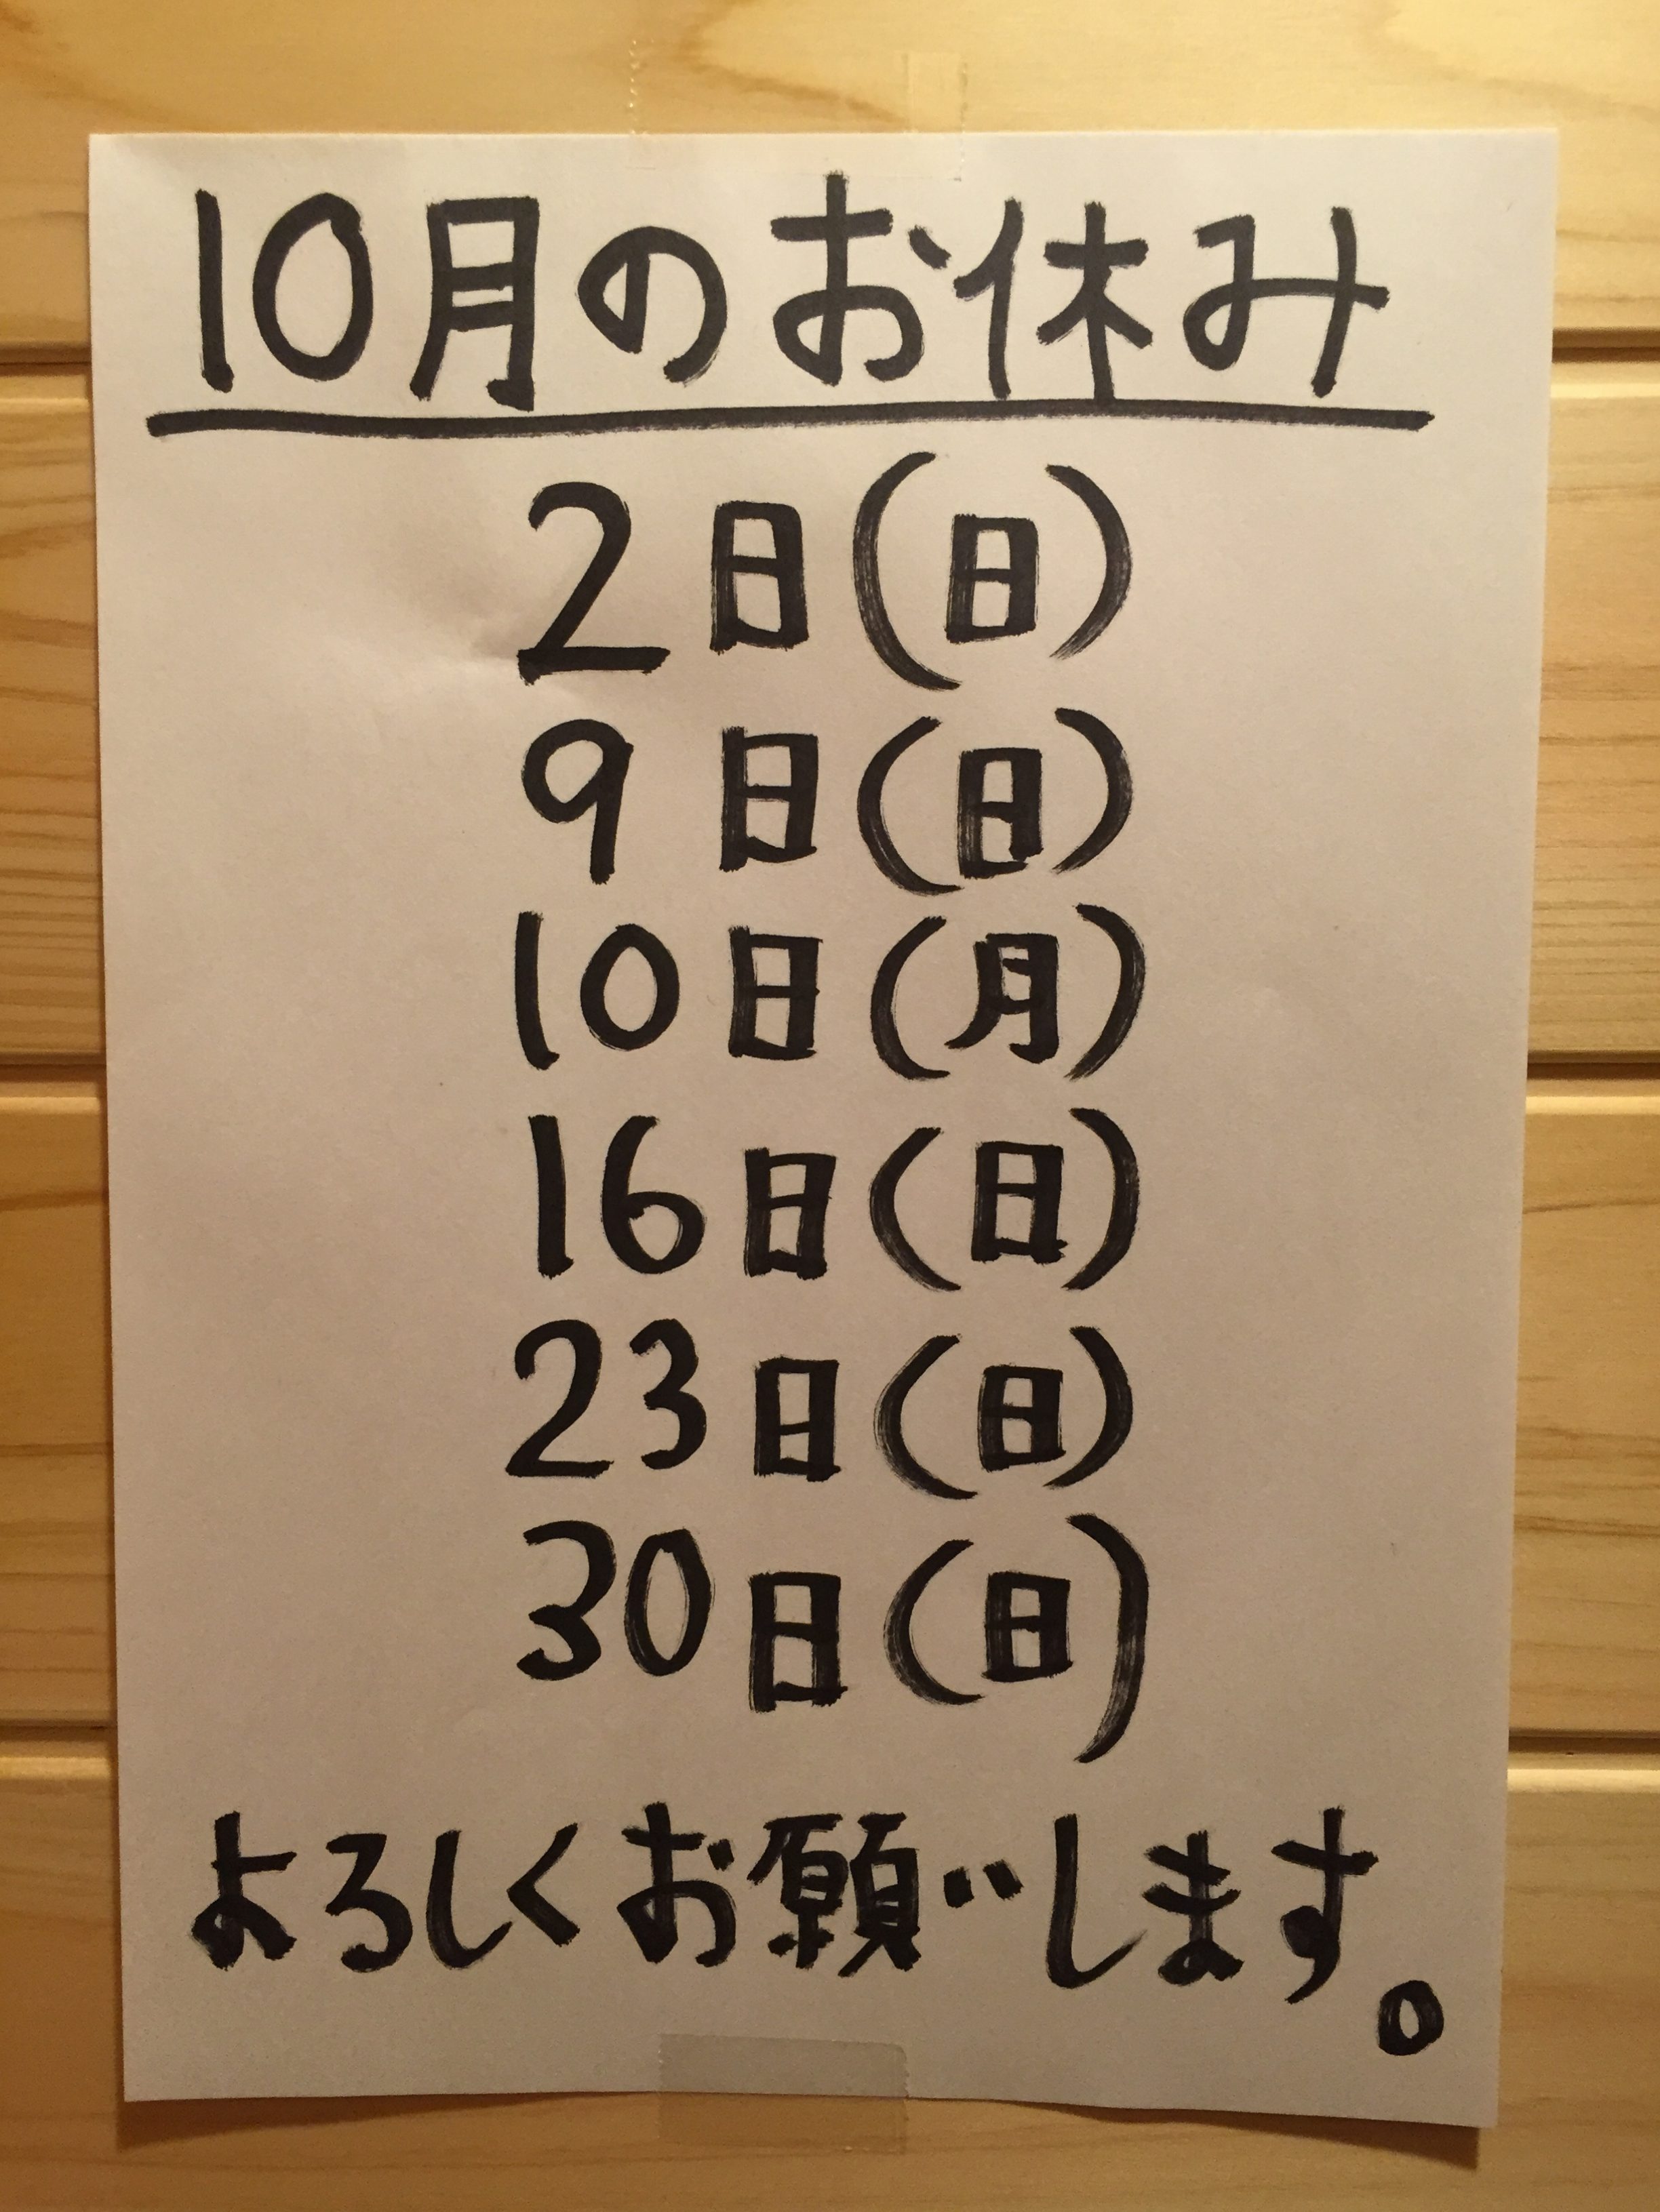 10月のお休み
2日(日)
9日(日)
10日(月)
16日(日)
23日(日)
30日(日)
よろしくお願いします。